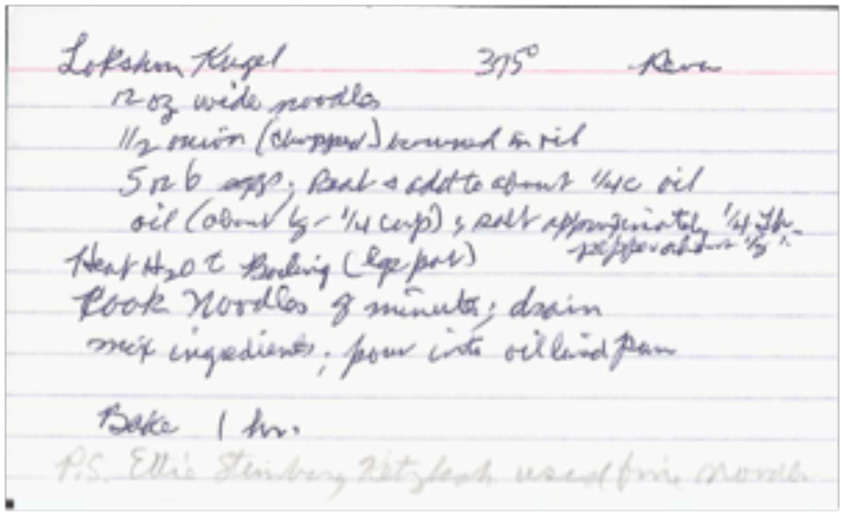 Lokshon Kugel 375° Reva
12 oz wide noodles
1/2 onion (chopped) browned in oil
5 or 6 eggs; Beat & add to about 1/4 c oil
oil (about 1/8 - 1/4 cup); salt approximately 1/4 tsp
pepper about 1/8 "
Heat H2O to Boiling (lge pot)
Cook Noodles 9 minutes; drain
mix ingredients; pour into oil lined pan
Bake 1 hr.
P.S. Ellie Steinberg used fine noodles